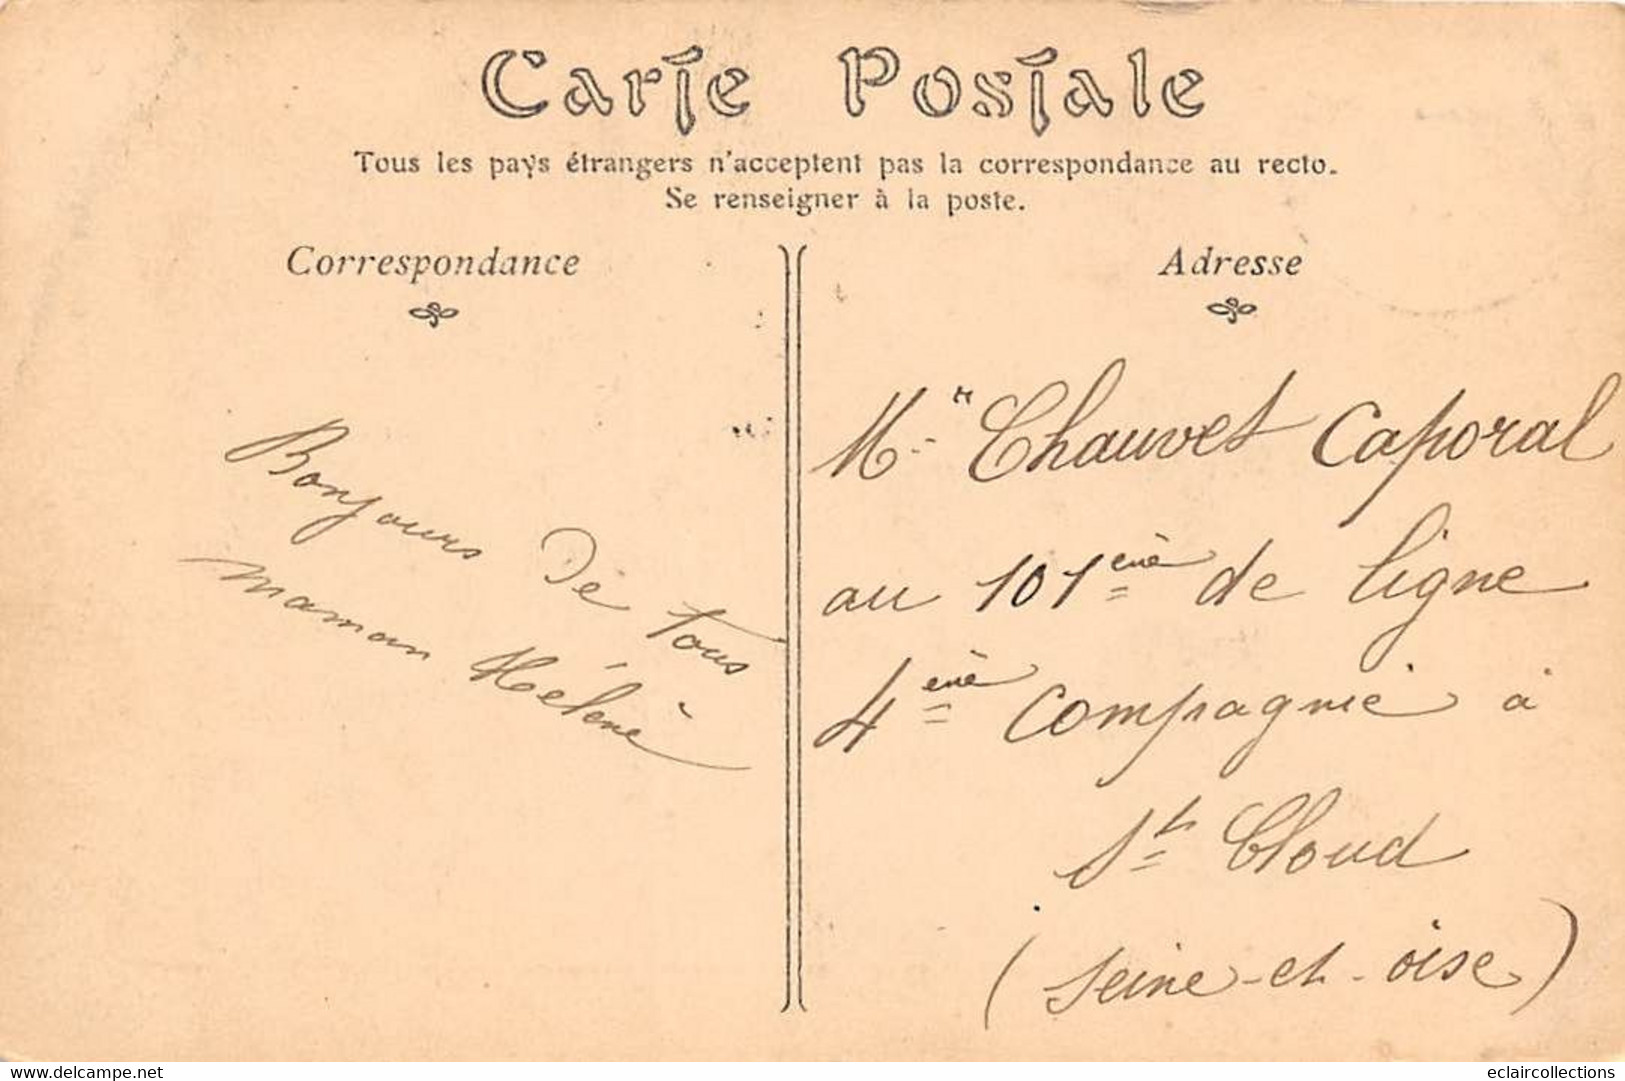 Carte Postale
Tous les pays étrangers n'acceptent pas la correspondance au recto.
Se renseigner à la poste.
Correspondance
Adresse
Bonjours De tous
maman Hélène
Mr Chauvet Caporal
au 101ème de ligne
4ème compagnie à
St Cloud
(Seine-et-oise)
https://www.delcampe.net
eclaircollections